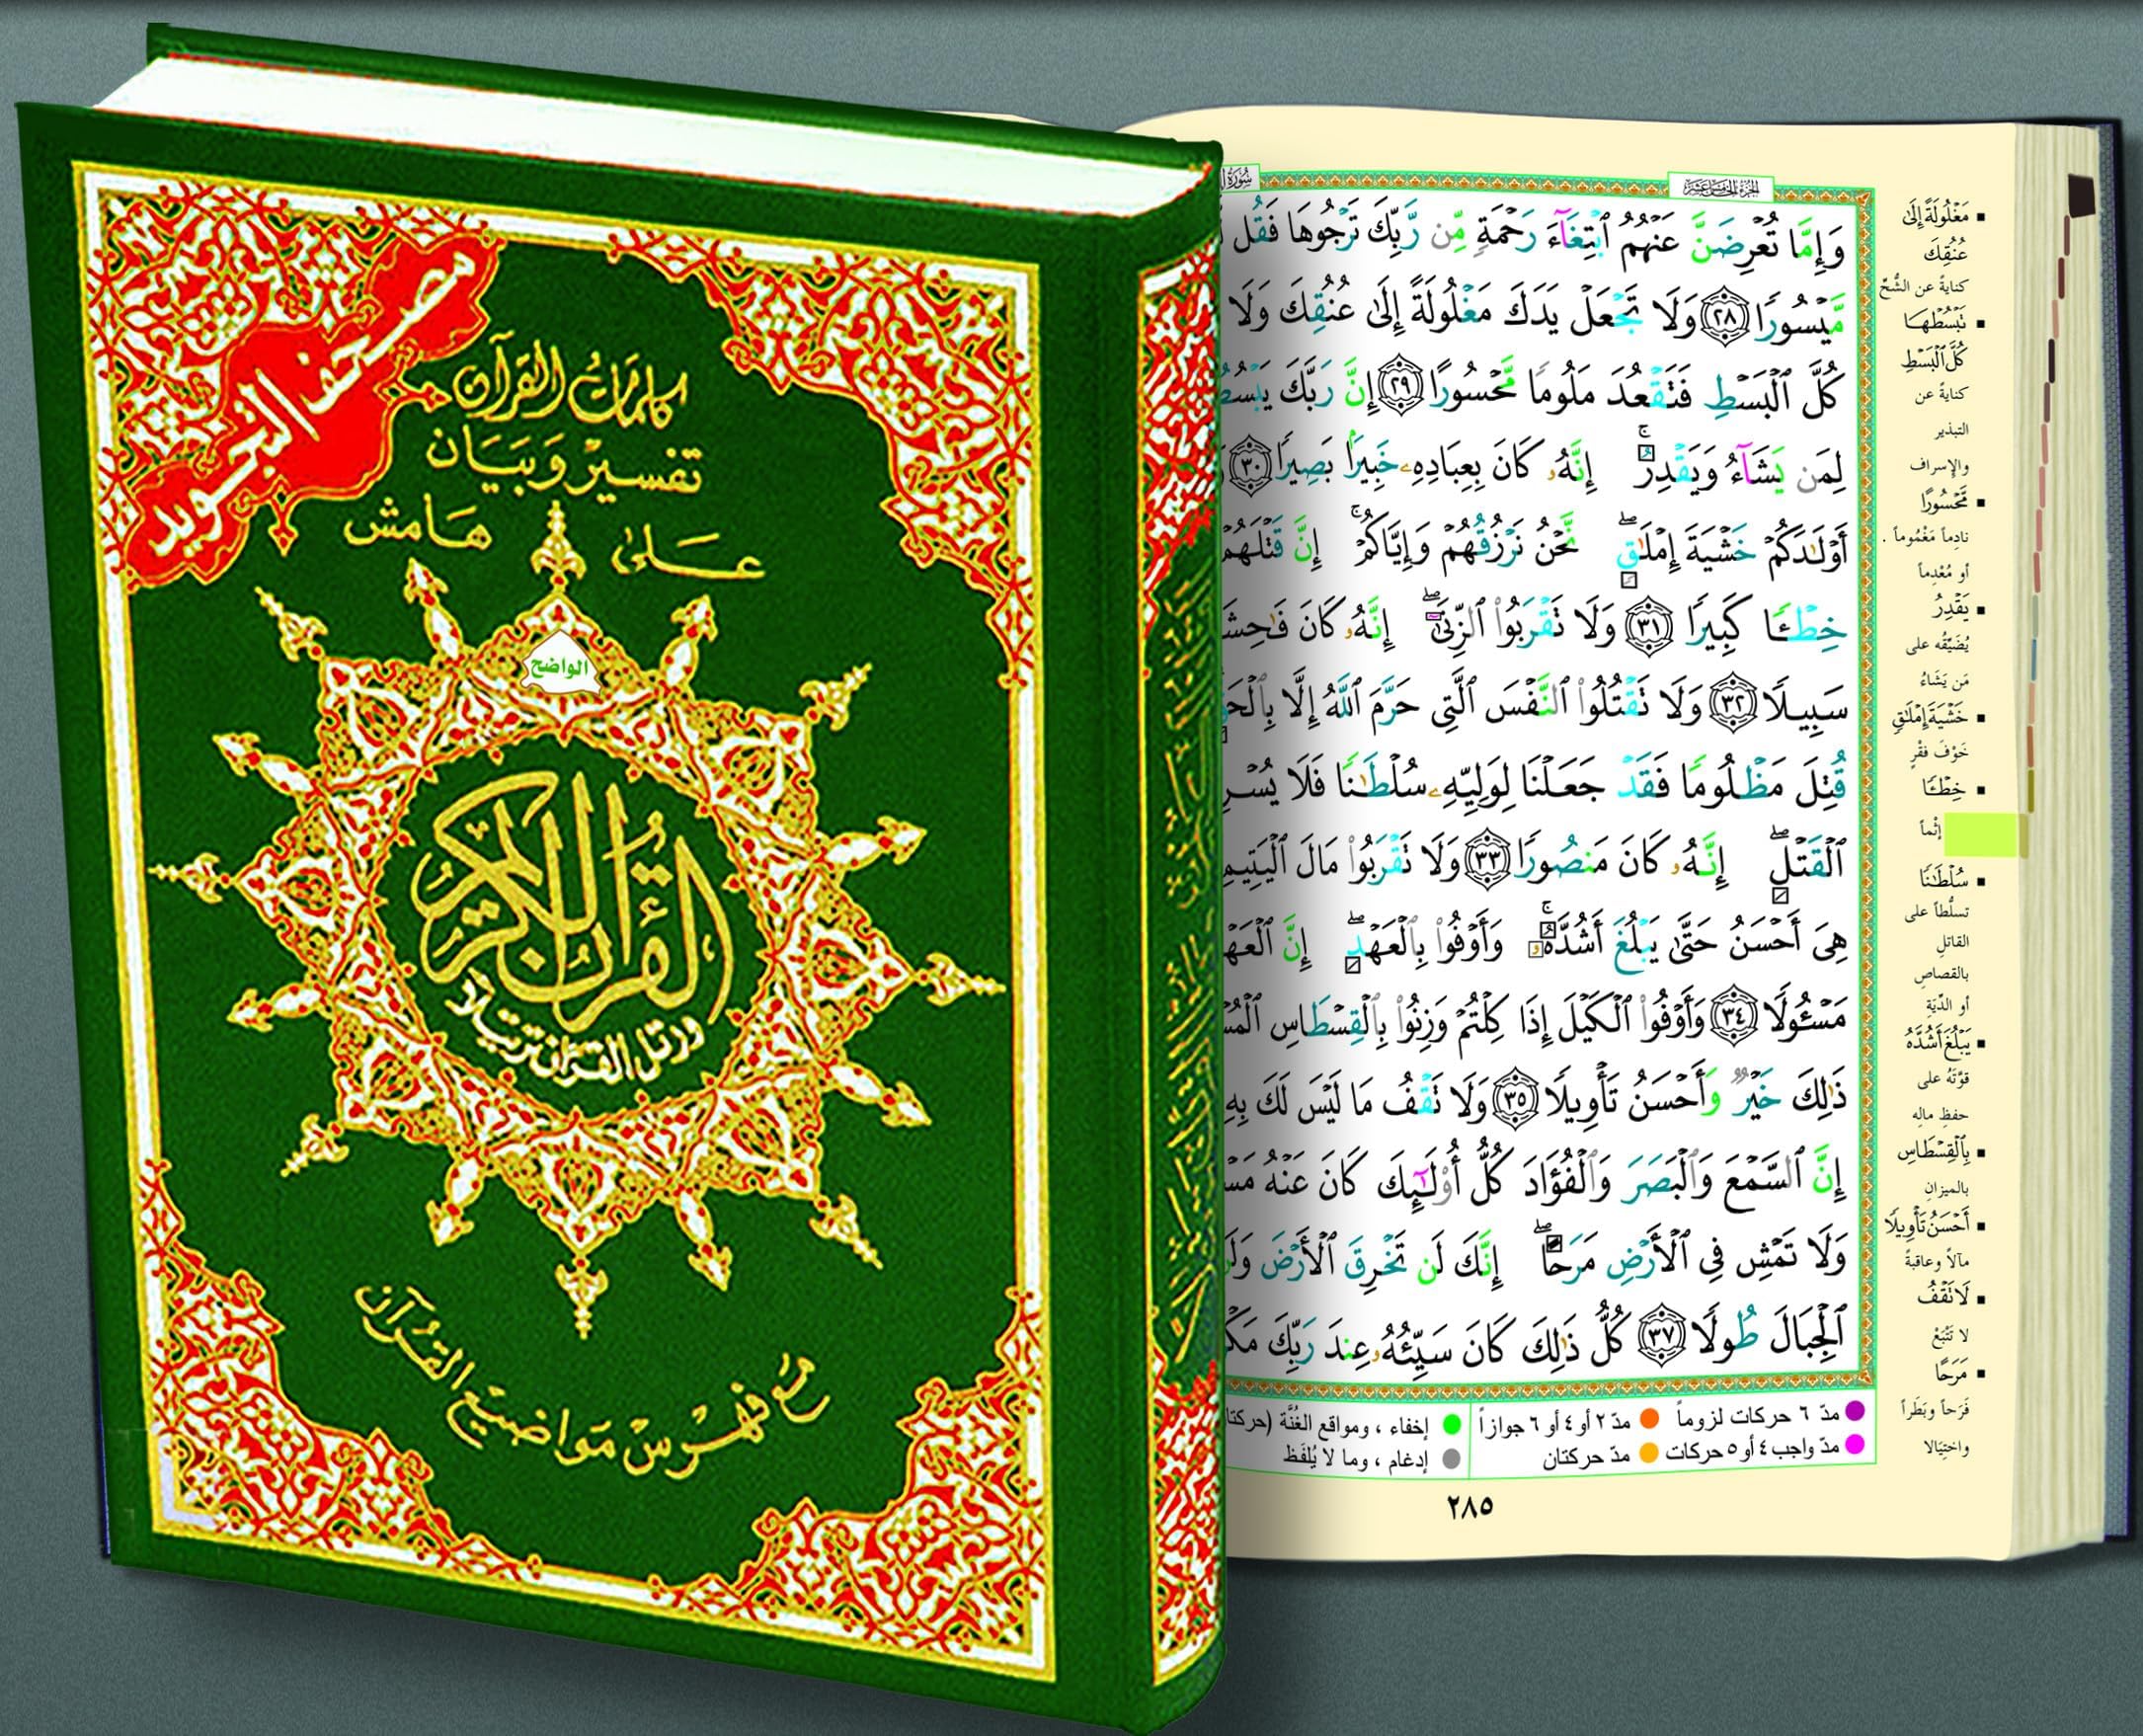 مصحف التجويد
كلمات القرآن
تفسير وبيان
على هامش
الواضح
القرآن الكريم
ورتل القرآن ترتيلا
مع فهرس مواضيع القرآن
سُورَةُ
الجزء الخامس عشر
وَإِمَّا تُعْرِضَنَّ عَنْهُمُ ٱبْتِغَآءَ رَحْمَةٍ مِّن رَّبِّكَ تَرْجُوهَا فَقُل
مَّيْسُورًا ٢٨ وَلَا تَجْعَلْ يَدَكَ مَغْلُولَةً إِلَىٰ عُنُقِكَ وَلَا
كُلَّ ٱلْبَسْطِ فَتَقْعُدَ مَلُومًا مَّحْسُورًا ٢٩ إِنَّ رَبَّكَ يَبْسُطُ
لِمَن يَشَآءُ وَيَقْدِرُ ۚ إِنَّهُۥ كَانَ بِعِبَادِهِۦ خَبِيرًۢا بَصِيرًا ٣٠
أَوْلَـٰدَكُمْ خَشْيَةَ إِمْلَـٰقٍ ۖ نَّحْنُ نَرْزُقُهُمْ وَإِيَّاكُمْ ۚ إِنَّ قَتْلَهُمْ
خِطْـًٔا كَبِيرًا ٣١ وَلَا تَقْرَبُوا۟ ٱلزِّنَىٰٓ ۖ إِنَّهُۥ كَانَ فَـٰحِشَ
سَبِيلًا ٣٢ وَلَا تَقْتُلُوا۟ ٱلنَّفْسَ ٱلَّتِى حَرَّمَ ٱللَّهُ إِلَّا بِٱلْحَقِّ
قُتِلَ مَظْلُومًا فَقَدْ جَعَلْنَا لِوَلِيِّهِۦ سُلْطَـٰنًا فَلَا يُسْرِ
ٱلْقَتْلِ ۖ إِنَّهُۥ كَانَ مَنصُورًا ٣٣ وَلَا تَقْرَبُوا۟ مَالَ ٱلْيَتِيمِ
هِىَ أَحْسَنُ حَتَّىٰ يَبْلُغَ أَشُدَّهُۥ ۚ وَأَوْفُوا۟ بِٱلْعَهْدِ ۖ إِنَّ ٱلْعَهْ
مَسْـُٔولًا ٣٤ وَأَوْفُوا۟ ٱلْكَيْلَ إِذَا كِلْتُمْ وَزِنُوا۟ بِٱلْقِسْطَاسِ ٱلْمُسْ
ذَٰلِكَ خَيْرٌ وَأَحْسَنُ تَأْوِيلًا ٣٥ وَلَا تَقْفُ مَا لَيْسَ لَكَ بِهِ
إِنَّ ٱلسَّمْعَ وَٱلْبَصَرَ وَٱلْفُؤَادَ كُلُّ أُو۟لَـٰٓئِكَ كَانَ عَنْهُ مَسْ
وَلَا تَمْشِ فِى ٱلْأَرْضِ مَرَحًا ۖ إِنَّكَ لَن تَخْرِقَ ٱلْأَرْضَ وَلَن
ٱلْجِبَالَ طُولًا ٣٧ كُلُّ ذَٰلِكَ كَانَ سَيِّئُهُۥ عِندَ رَبِّكَ مَكْ
مدّ ٦ حركات لزوماً
مدّ ٢ أو ٤ أو ٦ جوازاً
إخفاء ، ومواقع الغُنَّة (حركتا
مدّ واجب ٤ أو ٥ حركات
مدّ حركتان
إدغام ، وما لا يُلفَظ
٢٨٥
مَغْلُولَةً إِلَىٰ
عُنُقِكَ
كناية عن الشُّحّ
تَبْسُطْهَا
كُلَّ ٱلْبَسْطِ
كناية عن
التبذير
والإسراف
مَّحْسُورًا
نادِماً مَغْمُوماً .
أو مُعْدِماً
يَقْدِرُ
يُضَيِّقُه على
مَن يَشَاءُ
خَشْيَةَ إِمْلَـٰقٍ
خَوْفَ فقْرٍ
خِطْـًٔا
إثْماً
سُلْطَـٰنًا
تسلُّطاً على
القاتل
بالقصاص
أو الدِّيَةِ
يَبْلُغَ أَشُدَّهُ
قوّتَهُ على
حفظِ مالِه
بِٱلْقِسْطَاسِ
بالميزانِ
أَحْسَنُ تَأْوِيلًا
مآلاً وعاقبةً
لَا تَقْفُ
لا تَتَّبعْ
مَرَحًا
فَرَحاً وبَطَراً
واختِيَالا